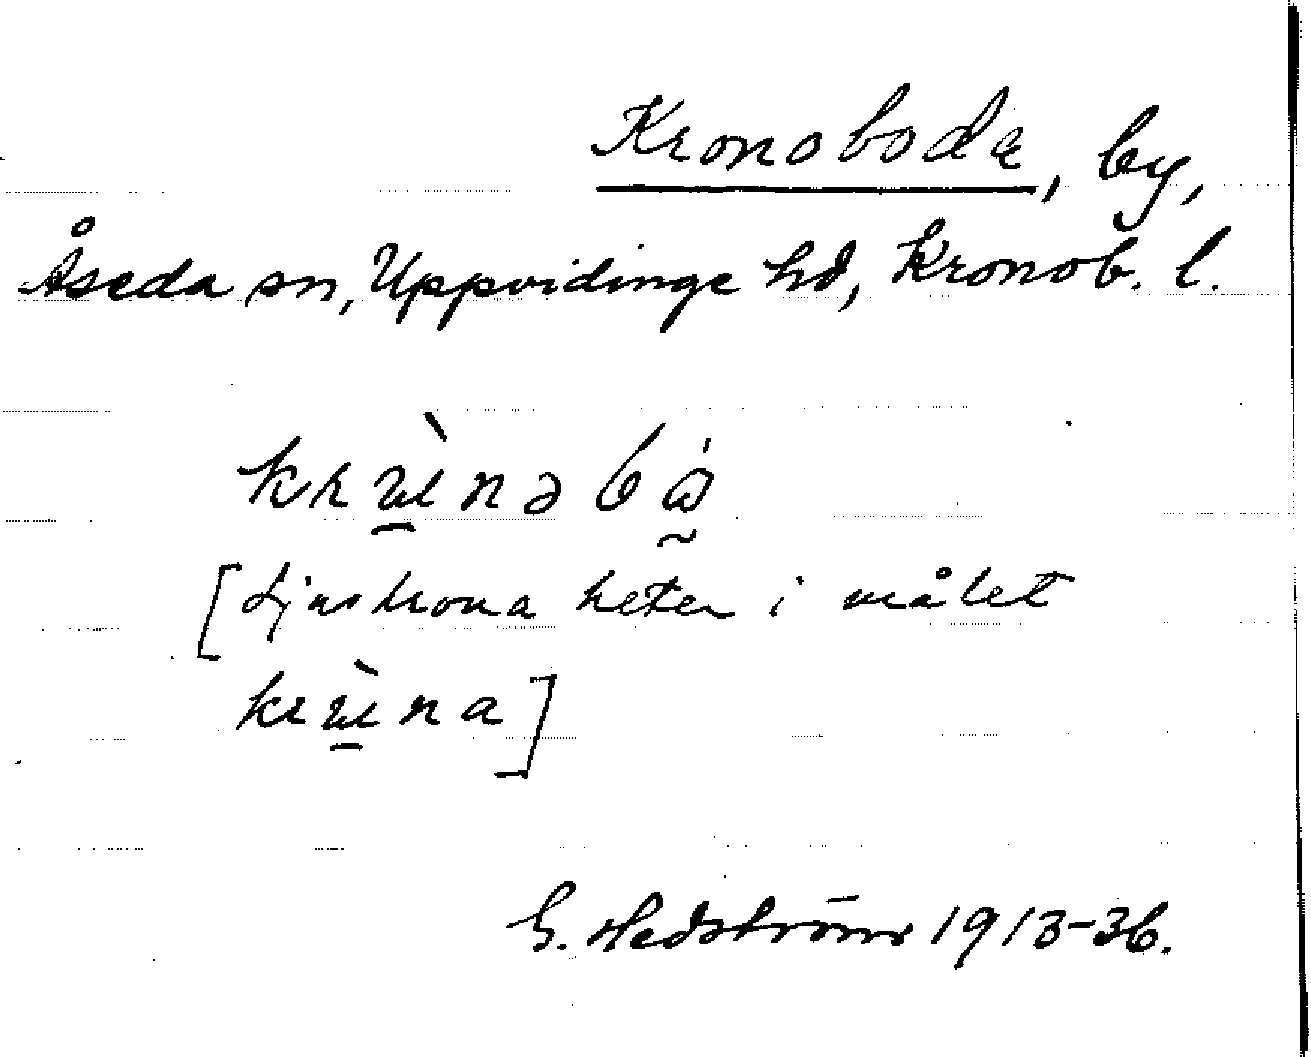 Kronoboda, by,
Åseda sn, Uppvidinge hd, Kronob. l.
[Ljuskrona heter i målet
G. Hedström 1913-36.